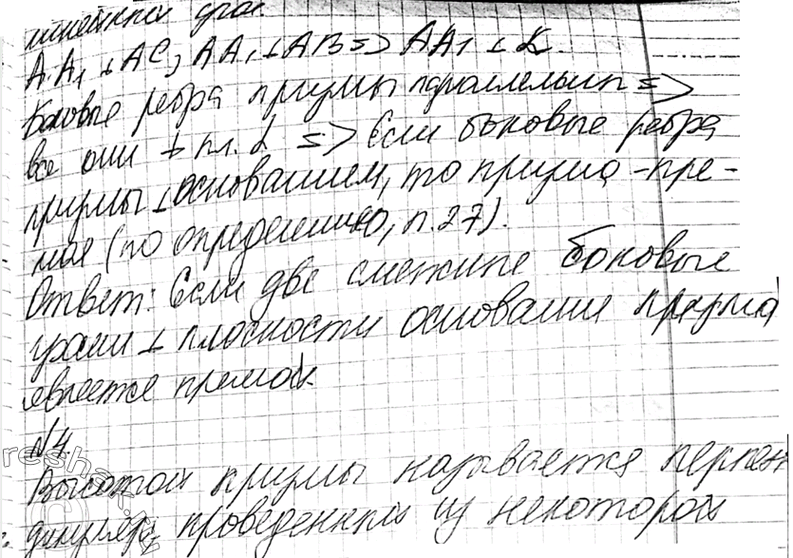 линейный угол
A A₁ ⊥ AC, AA₁ ⊥ AB => AA₁ ⊥ α.
Боковые ребра призмы параллельны =>
все они ⊥ пл. α => Если боковые ребра
призмы ⊥ основанием, то призма -пре-
мая (по определению, п.27).
Ответ: Если две смежные боковые
грани ⊥ плоскости основания призма
является премой.
№4.
Высотой призмы называется перпен
дикуляр, проведенный из некоторой